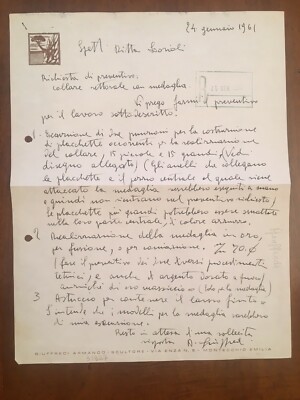 24 gennaio 1961
Spett. Ditta
Richiesta di preventivo:
collare rettorale con medaglia
Vi prego farmi il preventivo
per il lavoro sottodescritto:
1. Esecuzione di due punzoni per la costruzione
di placchette occorrenti per la realizzazione
del collare, 15 piccole e 15 grandi (vedi
disegno allegato, (gli anelli che collegano
le placchette e il perno centrale al quale viene
attaccata la medaglia sarebbero eseguiti a mano
e quindi non rientrano nel preventivo richiesto,
le placchette più grandi potrebbero essere smaltate
nella loro parte centrale, di colore azzurro.
2 Realizzazione della medaglia in oro,
per fusione, o per coniazione. 70
(fare il preventivo dei due diversi procedimenti
tecnici, e anche d'argento dorato a fuoco)
anziché di oro massiccio = (solo la medaglia)
3 Astuccio per contenere il lavoro finito.
S'intende che i modelli per la medaglia sarebbero
di mia esecuzione.
Resto in attesa d'una sollecita
risposta A. Giuffredi
GIUFFREDI ARMANDO - SCULTORE - VIA ENZA N. 8 - MONTECCHIO EMILIA